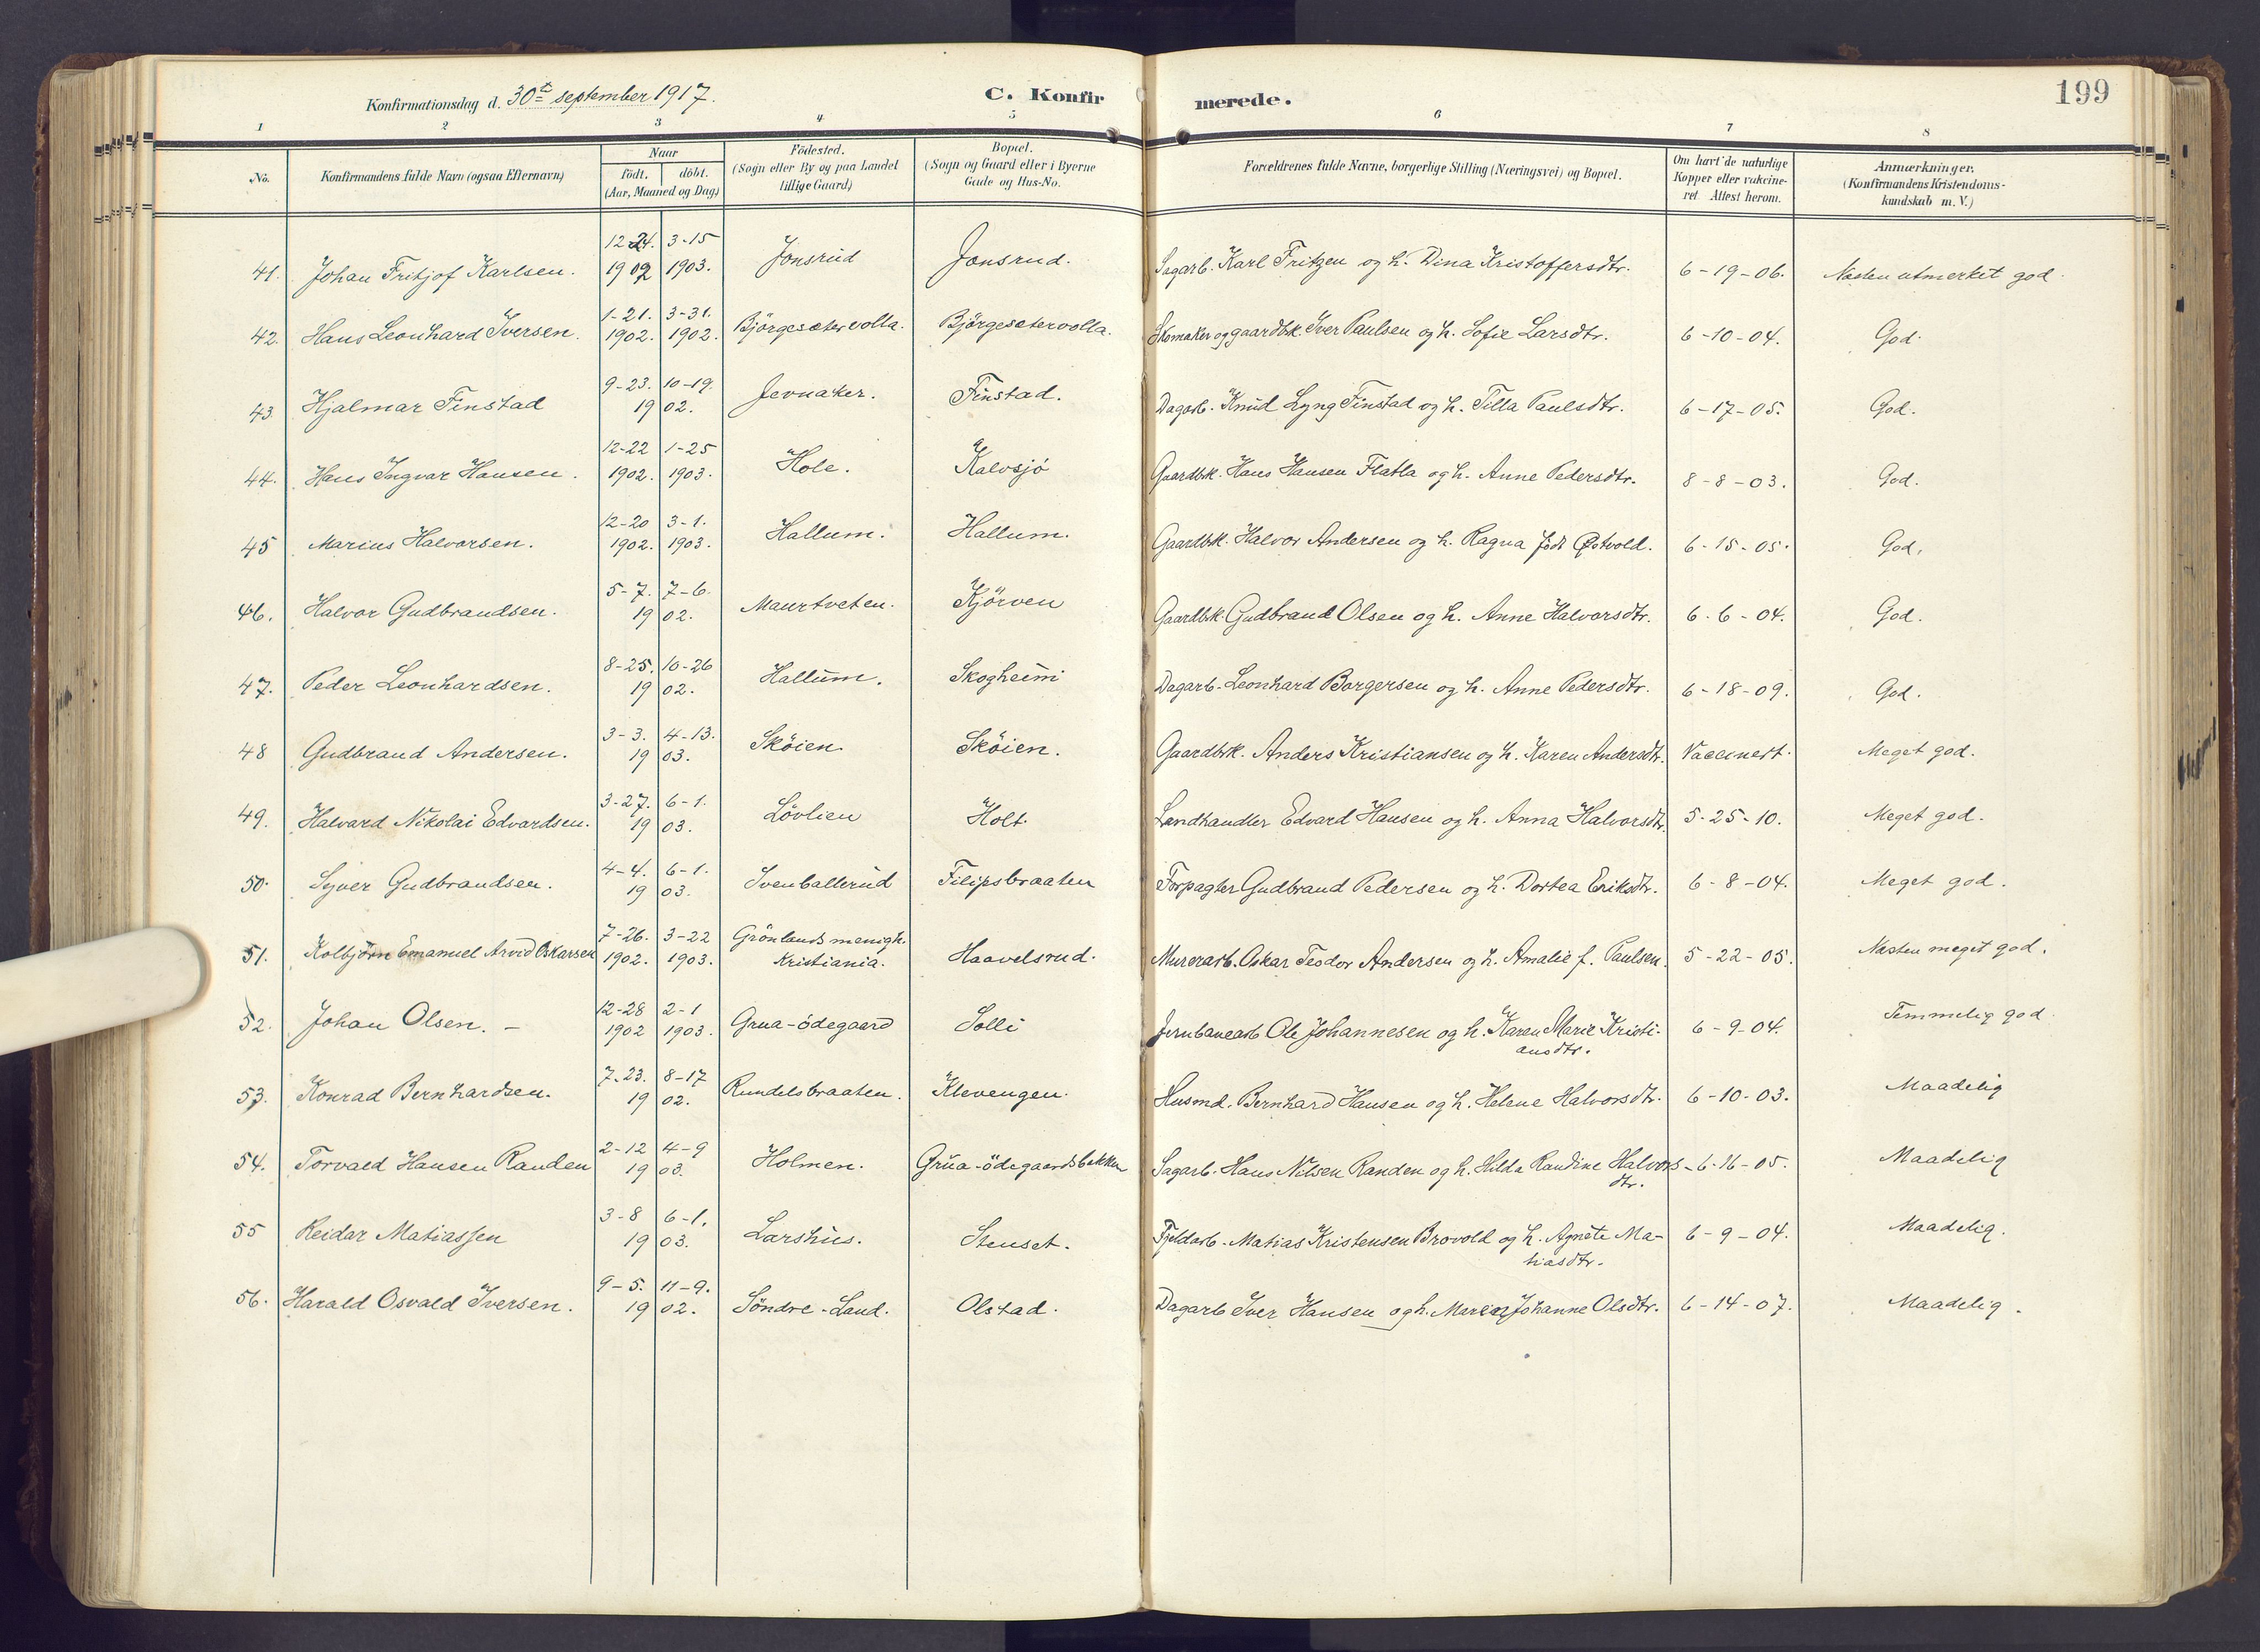 Konfirmationsdag d. 30te september 1917.
C. Konfirmerede.
199
1 2 3 4 5 6 7 8
No.
Konfirmandens fulde Navn (ogsaa Efternavn)
Naar
födt. döbt.
(Aar, Maaned og Dag)
Födested.
(Sogn eller By og paa Landet
tillige Gaard)
Bopæl.
(Sogn og Gaard eller i Byerne
Gade og Hus-No.
Forældrenes fulde Navne, borgerlige Stilling (Næringsvei) og Bopæl.
Om havt de naturlige
Kopper eller vakcine-
ret. Attest herom.
Anmærkninger.
(Konfirmandens Kristendoms-
kundskab m. V.)
12-24. 3-15
41. Johan Fritjof Karlsen. 1902 1903. Jonsrud Jonsrud. Sagarb. Karl Fritzen og h. Dina Kristoffersdtr. 6-19-06. Næsten utmerket god.
1-21. 3-31.
42. Hans Leonhard Iversen. 1902. 1902. Björgesætervolla. Björgesetervolla. Skomaker og gaardbk. Iver Paulsen og h. Sofie Larsdtr. 6-10-04. God.
9-23. 10-19.
43 Hjalmar Finstad 1902. Jevnaker. Finstad. Dagarb. Knud Lyng Finstad og h. Tilla Paulsdtr. 6-17-05. God.
12-22 1-25
44. Hans Ingvar Hansen. 1902. 1903. Hole. Kalvsjö Gaardbk. Hans Hansen Flatla og h. Anne Pedersdtr. 8-8-03. God.
12-20 3-1.
45 Marius Halvorsen. 1902. 1903. Hallum. Hallum. Gaardbk. Halvor Andersen og h. Ragna födt Østvold. 6-15-05. God.
5-7. 7-6.
46. Halvor Gudbrandsen. 1902. Maurtveten. Kjörven Gaardbk. Gudbrand Olsen og h. Anne Halvorsdtr. 6-6-04. God.
8-25. 10-26
47. Peder Leonhardsen. 1902. Hallum. Skogheim Dagarb. Leonhard Borgersen og h. Anne Pedersdtr. 6-18-09. God.
3-3. 4-13.
48 Gudbrand Andersen. 1903. Sköien Sköien. Gaardbk. Anders Kristiansen og h. Karen Andersdtr. Vaccinert. Meget god.
3-27. 6-1.
49. Halvard Nikolai Edvardsen. 1903. Lövlien Holt. Landhandler Edvard Hansen og h. Anna Halvorsdtr. 5-25-10. Meget god.
4-4. 6-1.
50. Syver Gudbrandsen. 1903. Svenballerud Filipsbraaten Forpagter Gudbrand Pedersen og h. Dortea Eriksdtr. 6-8-04. Meget god.
7-26. 3-22 Grönlands menigh.
51. Kolbjörn Emanuel Arvid Oskarsen 1902. 1903. Kristiania. Haavelsrud. Murerarb. Oskar Teodor Andersen og h. Amalie f. Paulsen. 5-22-05. Næsten meget god.
12-28 2-1
52. Johan Olsen. - 1902 1903. Grua-ödegaard Solli Jernbanearb Ole Johannesen og h. Karen Marie Kristi- 6-9-04. Temmelig god.
ansdtr.
7-23. 8-17
53. Konrad Bernhardsen. 1902. Rundelsbraaten. Klevengen. Husmd. Bernhard Hansen og h. Helene Halvorsdtr. 6-10-03. Maadelig
2-12 4-9
54. Torvald Hansen Randen 1903. Holmen. Grua-ödegaardsbakken Sagarb. Hans Nilsen Randen og h. Hilda Randine Halvors- 6-16-05. Maadelig
dtr.
3-8 6-1.
55 Reidar Matiassen 1903. Larshus. Stenset. Fjeldarb. Matias Kristensen Brovold og h. Agnete Ma- 6-9-04. Maadelig.
tiasdtr.
9-5. 11-9.
56. Harald Osvald Iversen. 1902. Söndre-Land. Olstad. Dagarb Iver Hansen og h. Maren Johanne Olsdtr. 6-14-07. Maadelig.